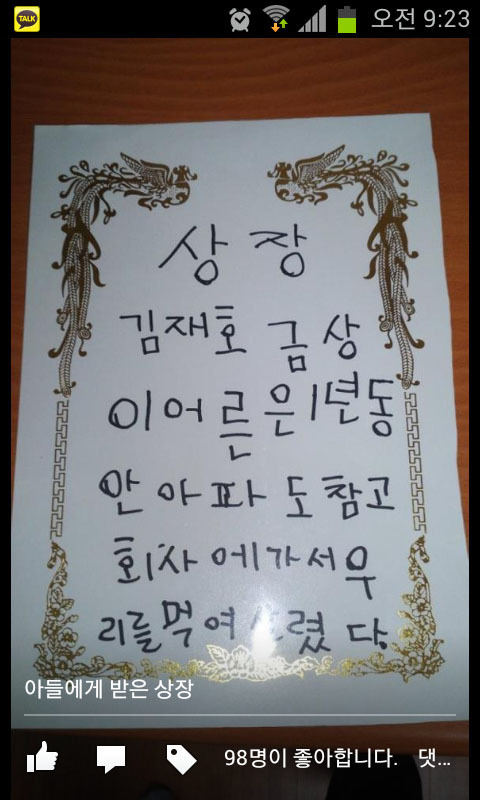 TALK
오전 9:23
상장
김재호 금상
이어른은 1년동
안 아파도 참고
회사에가서우
리를 먹여살렸다.
아들에게 받은 상장
98명이 좋아합니다. 댓...